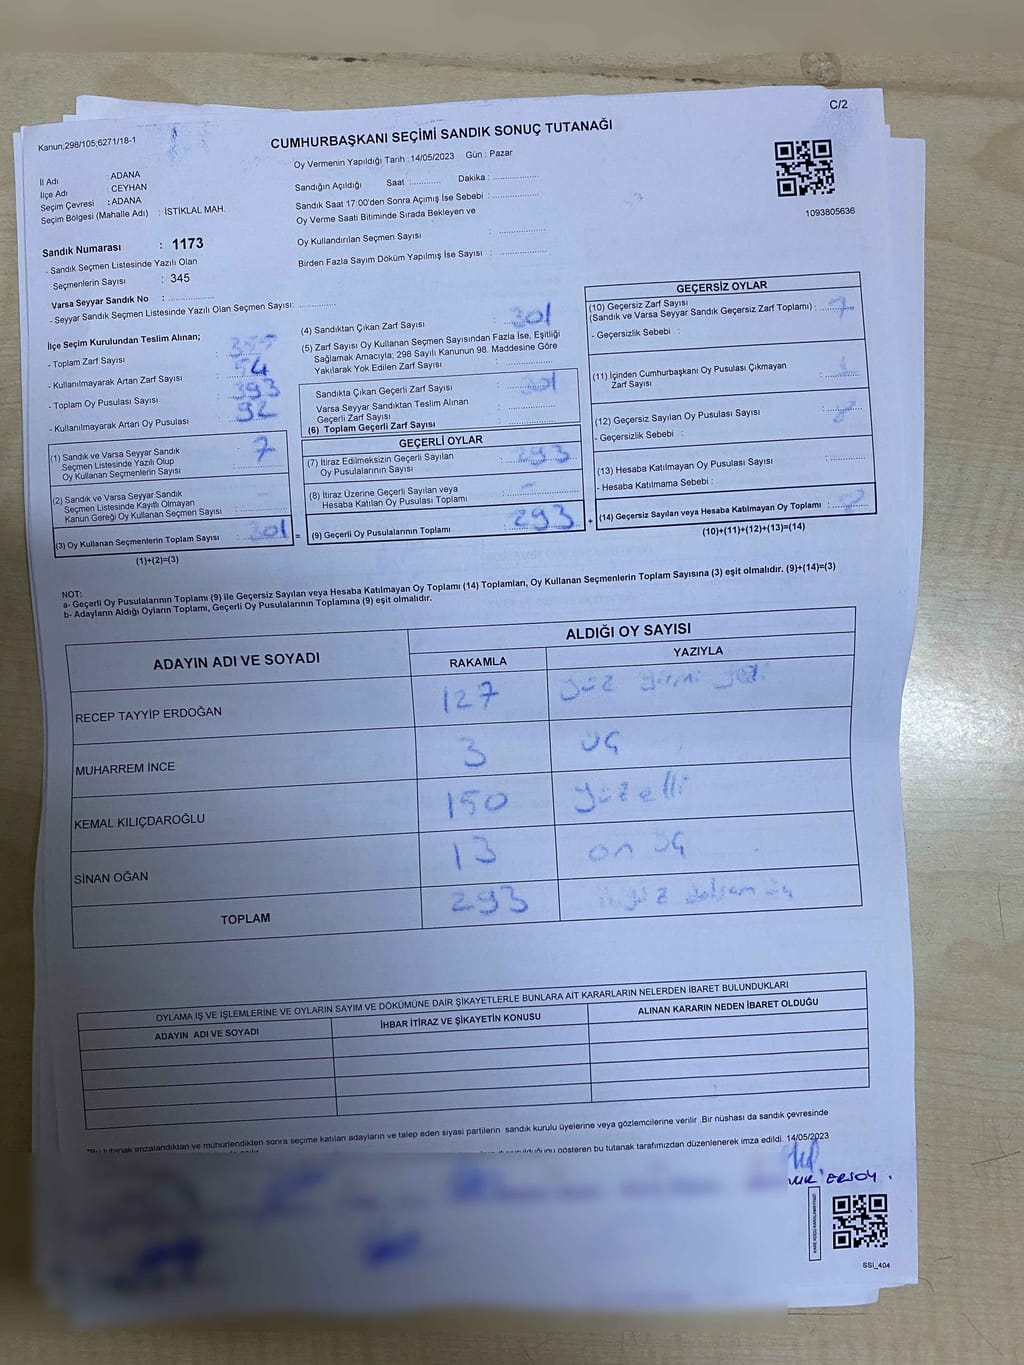 C/2
Kanun;298/105;6271/18-1
CUMHURBAŞKANI SEÇİMİ SANDIK SONUÇ TUTANAĞI
Oy Vermenin Yapıldığı Tarih :14/05/2023 Gün : Pazar
İl Adı : ADANA
İlçe Adı : CEYHAN
Seçim Çevresi : ADANA
Seçim Bölgesi (Mahalle Adı) : İSTİKLAL MAH.
Sandığın Açıldığı Saat :............ Dakika :................
Sandık Saat 17:00'den Sonra Açımış İse Sebebi :................
Oy Verme Saati Bitiminde Sırada Bekleyen ve
Oy Kullandırılan Seçmen Sayısı :................
Birden Fazla Sayım Döküm Yapılmış İse Sayısı :................
1093805636
Sandık Numarası : 1173
- Sandık Seçmen Listesinde Yazılı Olan
Seçmenlerin Sayısı : 345
Varsa Seyyar Sandık No :................
- Seyyar Sandık Seçmen Listesinde Yazılı Olan Seçmen Sayısı: ............
İlçe Seçim Kurulundan Teslim Alınan;
- Toplam Zarf Sayısı :
- Kullanılmayarak Artan Zarf Sayısı : 54
- Toplam Oy Pusulası Sayısı : 393
- Kullanılmayarak Artan Oy Pusulası : 92
(1) Sandık ve Varsa Seyyar Sandık
Seçmen Listesinde Yazılı Olup
Oy Kullanan Seçmenlerin Sayısı : 7
(2) Sandık ve Varsa Seyyar Sandık
Seçmen Listesinde Kayıtlı Olmayan
Kanun Gereği Oy Kullanan Seçmen Sayısı : -
(3) Oy Kullanan Seçmenlerin Toplam Sayısı : 301
(1)+(2)=(3)
(4) Sandıktan Çıkan Zarf Sayısı : 301
(5) Zarf Sayısı Oy Kullanan Seçmen Sayısından Fazla İse, Eşitliği
Sağlamak Amacıyla; 298 Sayılı Kanunun 98. Maddesine Göre
Yakılarak Yok Edilen Zarf Sayısı :................
Sandıkta Çıkan Geçerli Zarf Sayısı : 301
Varsa Seyyar Sandıktan Teslim Alınan
Geçerli Zarf Sayısı :................
(6) Toplam Geçerli Zarf Sayısı :................
GEÇERLİ OYLAR
(7) İtiraz Edilmeksizin Geçerli Sayılan
Oy Pusulalarının Sayısı : 293
(8) İtiraz Üzerine Geçerli Sayılan veya
Hesaba Katılan Oy Pusulası Toplamı : -
= (9) Geçerli Oy Pusulalarının Toplamı : 293 +
GEÇERSİZ OYLAR
(10) Geçersiz Zarf Sayısı
(Sandık ve Varsa Seyyar Sandık Geçersiz Zarf Toplamı) : 7
- Geçersizlik Sebebi :
(11) İçinden Cumhurbaşkanı Oy Pusulası Çıkmayan
Zarf Sayısı :
(12) Geçersiz Sayılan Oy Pusulası Sayısı :
- Geçersizlik Sebebi :
(13) Hesaba Katılmayan Oy Pusulası Sayısı :............
- Hesaba Katılmama Sebebi :
(14) Geçersiz Sayılan veya Hesaba Katılmayan Oy Toplamı :
(10)+(11)+(12)+(13)=(14)
NOT:
a- Geçerli Oy Pusulalarının Toplamı (9) ile Geçersiz Sayılan veya Hesaba Katılmayan Oy Toplamı (14) Toplamları, Oy Kullanan Seçmenlerin Toplam Sayısına (3) eşit olmalıdır. (9)+(14)=(3)
b- Adayların Aldığı Oyların Toplamı, Geçerli Oy Pusulalarının Toplamına (9) eşit olmalıdır.
ADAYIN ADI VE SOYADI ALDIĞI OY SAYISI
RAKAMLA YAZIYLA
RECEP TAYYİP ERDOĞAN 127 yüz yirmi yedi
MUHARREM İNCE 3 üç
KEMAL KILIÇDAROĞLU 150 yüz elli
SİNAN OĞAN 13 on üç
TOPLAM 293 ikiyüz doksan üç
OYLAMA İŞ VE İŞLEMLERİNE VE OYLARIN SAYIM VE DÖKÜMÜNE DAİR ŞİKAYETLERLE BUNLARA AİT KARARLARIN NELERDEN İBARET BULUNDUKLARI
ADAYIN ADI VE SOYADI İHBAR İTİRAZ VE ŞİKAYETİN KONUSU ALINAN KARARIN NEDEN İBARET OLDUĞU
*Bu tutanak imzalandıktan ve mühürlendikten sonra seçime katılan adayların ve talep eden siyasi partilerin sandık kurulu üyelerine veya gözlemcilerine verilir. Bir nüshası da sandık çevresinde
gösteren bu tutanak tarafımızdan düzenlenerek imza edildi. 14/05/2023
ERSOY .
KARE KODU KARALAMAYINIZ!
SSİ_404